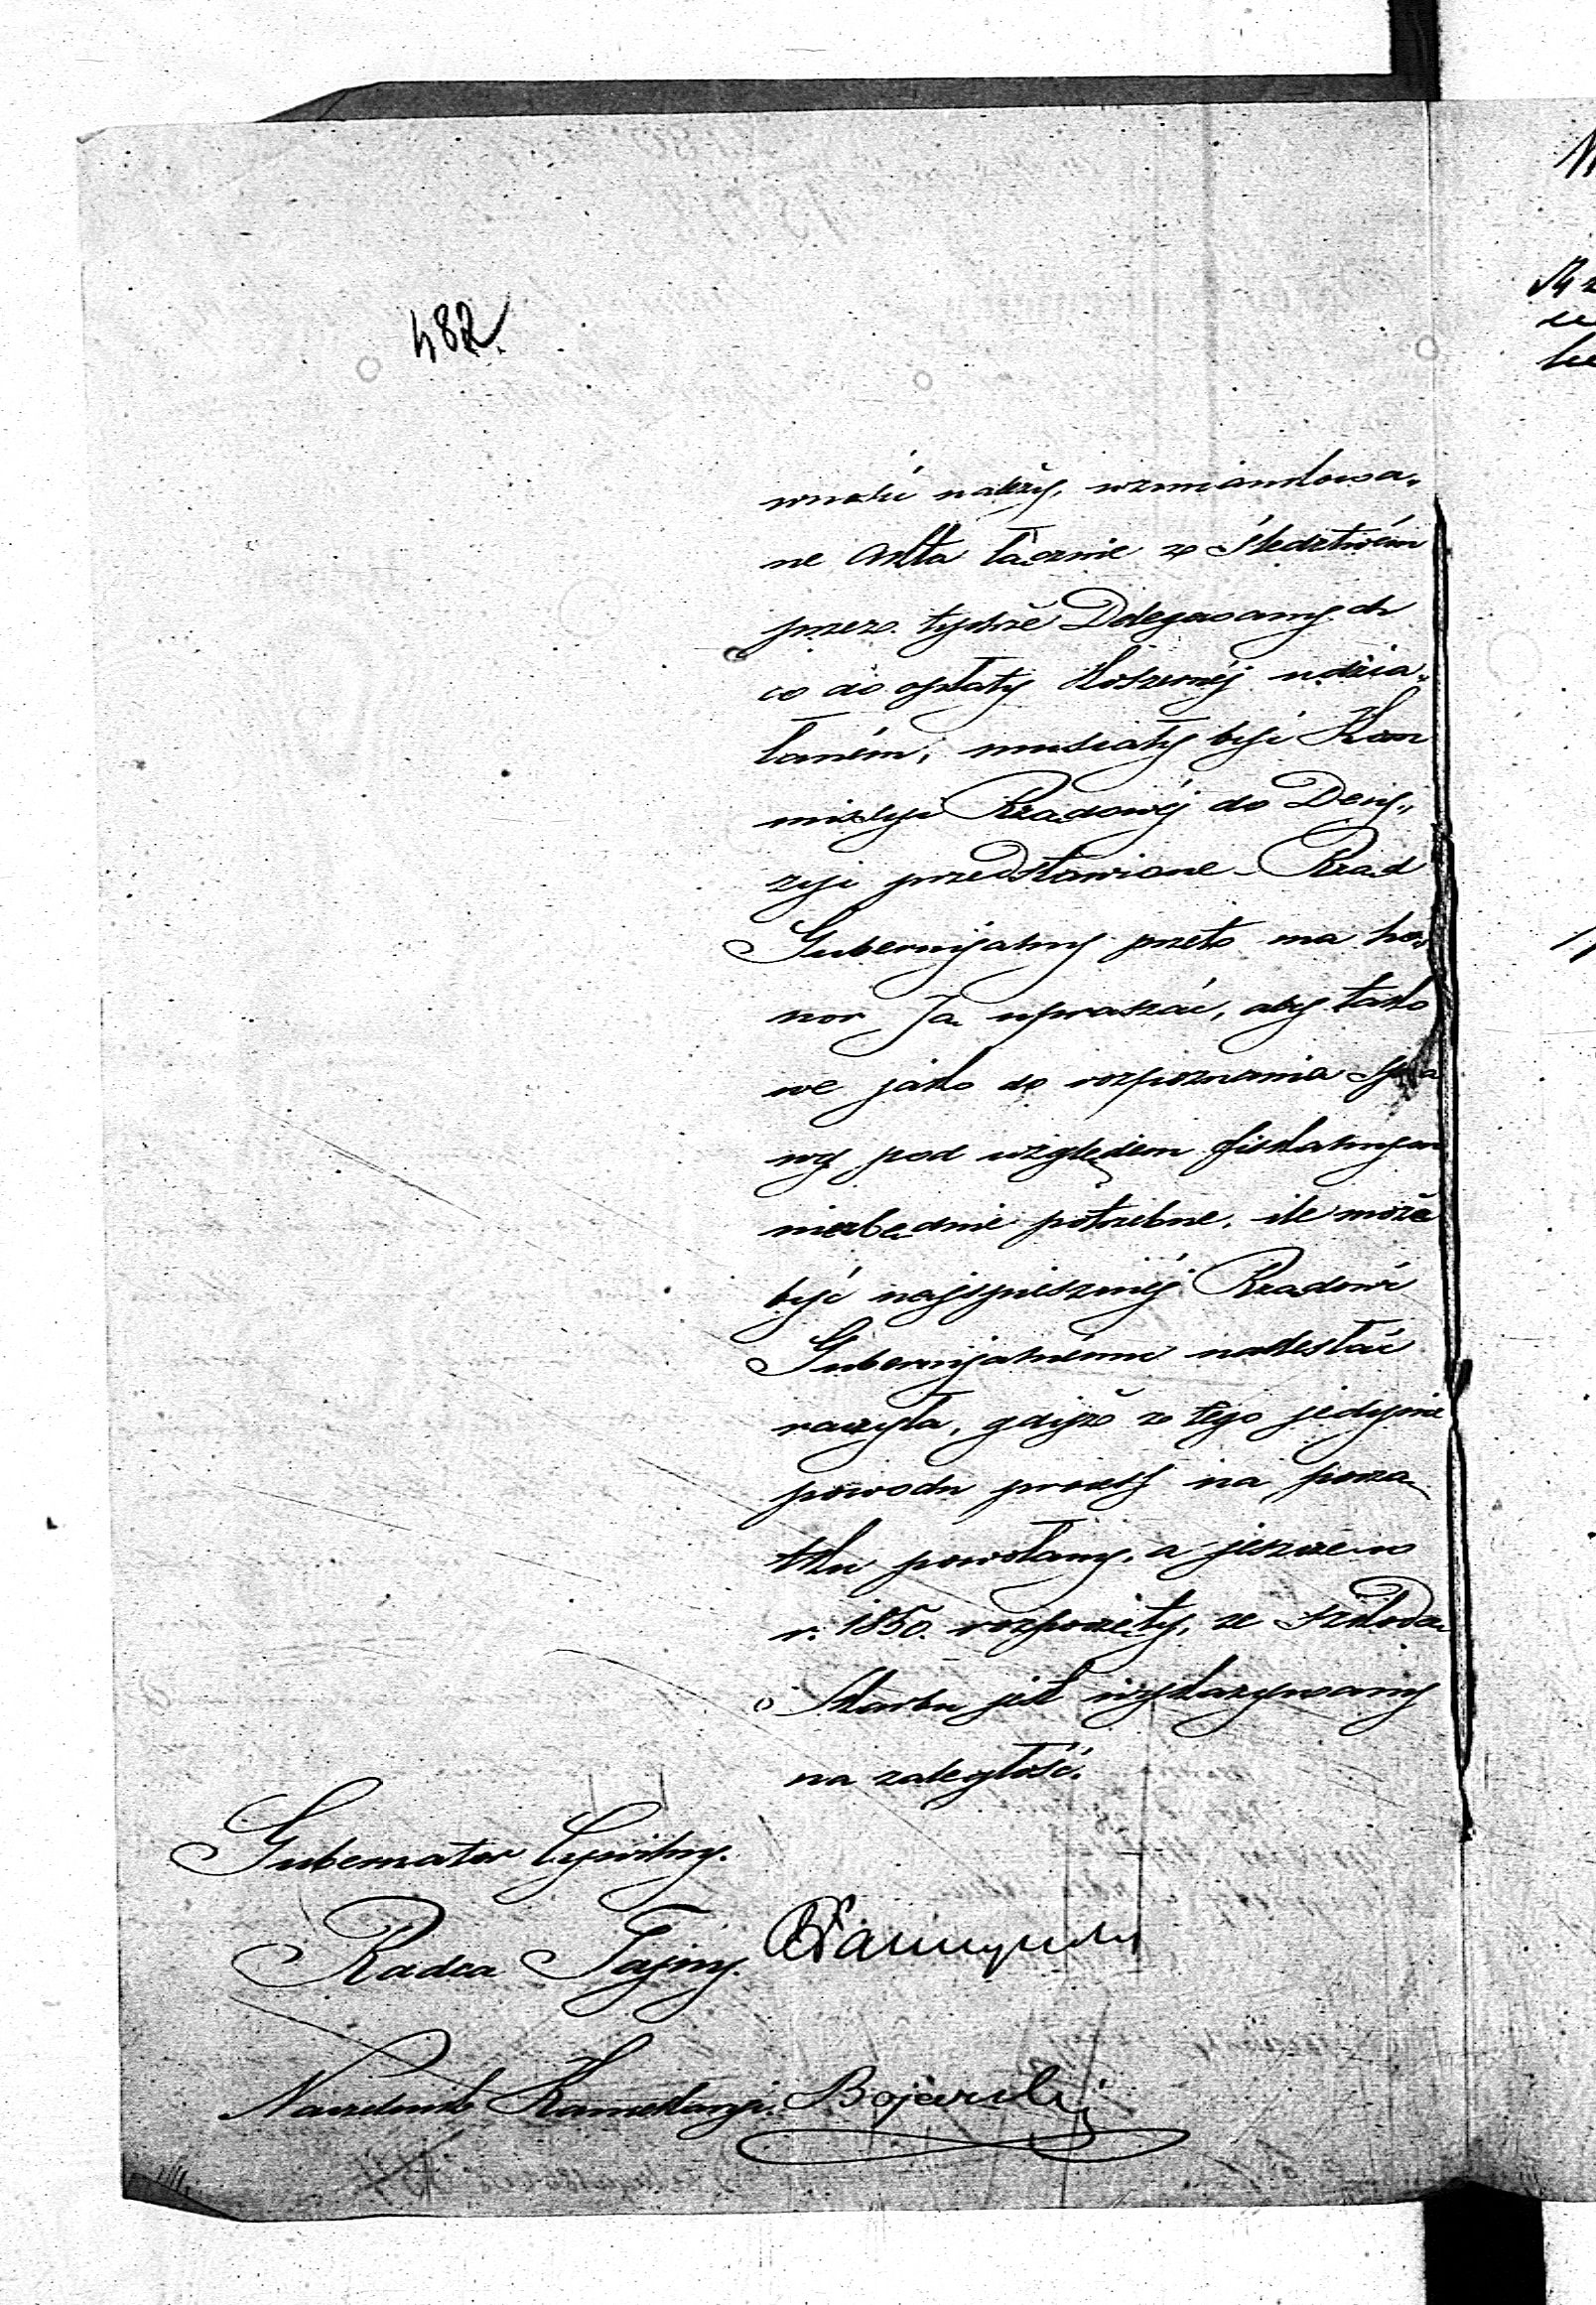 482.
wnosić należy, wzmiankowa„
ne Akta łącznie ze Śledztwém
przez tychże Delegowanych
co do opłaty Koszernéj udzia„
łaném, musiały być Kom
missyi Rządowéj do Decy„
zyi przedstawione – Rząd
Gubernijalny przeto ma ho„
nor Ją upraszać, aby tako
we jako do rozpoznania Spra
wy pod względem fiskalnym
niezbędnie potrzebne, ile może
być najspieszniéj Rządowi
Gubernijalnému nadesłać
raczyła, gdyż z tego jedynie
powodu process na począ
tku powołany, a jeszcze w
r. 1850. rozpoczęty, ze szkodą
Skarbu jest wykazywany
na zaległość.
Gubernator Cywilny.
Radca Tajny.
Naczelnik Kancellaryi. Bojarski